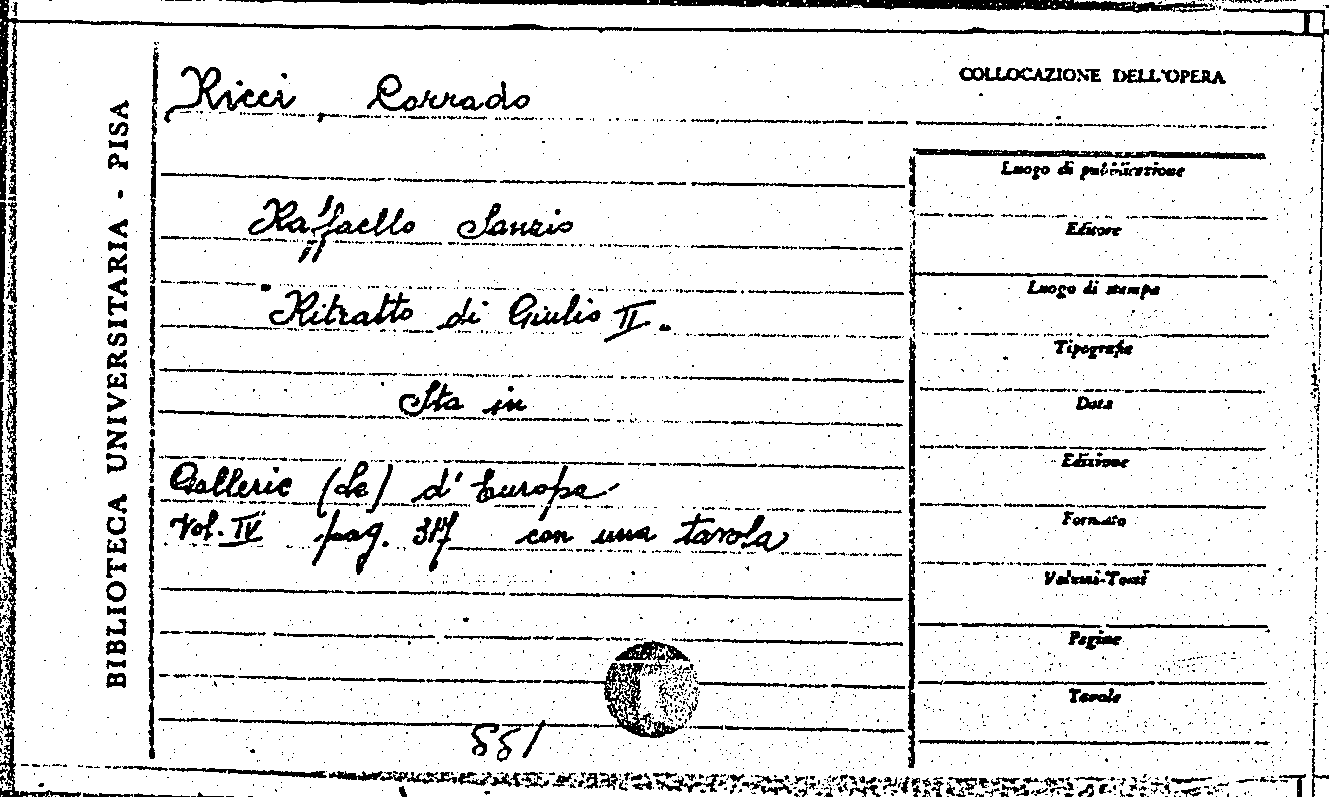 BIBLIOTECA UNIVERSITARIA - PISA
Ricci, Corrado
Raffaello Sanzio
"Ritratto di Giulio II.
Sta in
Gallerie (Le) d'Europa
Vol. IV pag. 317 con una tavola
551
COLLOCAZIONE DELL'OPERA
Luogo di pubblicazione
Editore
Luogo di stampa
Tipografia
Data
Edizione
Formato
Volumi-Tomi
Pagine
Tavole